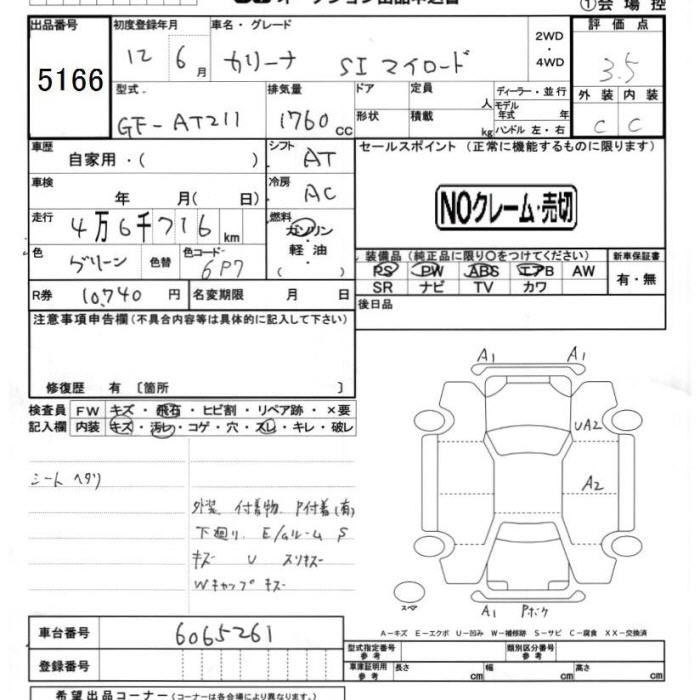 ①会場控
出品番号
5166
初度登録年月
12 6月
車名・グレード
カリーナ SI マイロード
2WD
・
4WD
評価点
3.5
外装 内装
C C
型式
GF-AT211
排気量
1760cc
ドア
形状
定員 人
積載 kg
ディーラー・並行
モデル
年式 年
ハンドル 左・右
車歴
自家用・( )
シフト
AT
車検
年 月( 日)
冷房
AC
走行
4万6千716km
燃料
ガソリン
・
軽油
( )
色
グリーン
色替
色コード
6P7
R券 10,740円
名変期限 月 日
セールスポイント(正常に機能するものに限ります)
NOクレーム・売切
装備品(純正品に限り○をつけてください)
新車保証書
PS PW ABS エアB AW
SR ナビ TV カワ
有・無
後日品
注意事項申告欄(不具合内容等は具体的に記入して下さい)
修復歴 有 〔箇所 〕
検査員
記入欄
FW キズ・飛石・ヒビ割・リペア跡・×要
内装 キズ・汚レ・コゲ・穴・スレ・キレ・破レ
シートヘタリ
外装 付着物、P付着(有)
下廻り、E/ルーム S
キズ U スリキズ
Wキャップキズ
A1 A1
UA2
A2
スペア
A1 Pボケ
A-キズ E-エクボ U-凹み W-補修跡 S-サビ C-腐食 XX-交換済
車台番号 6065261
登録番号
型式指定番号
参考
類別区分番号
参考
車庫証明用
参考
長さ cm 幅 cm 高さ cm
希望出品コーナー(コーナーは各会場により異なります。)